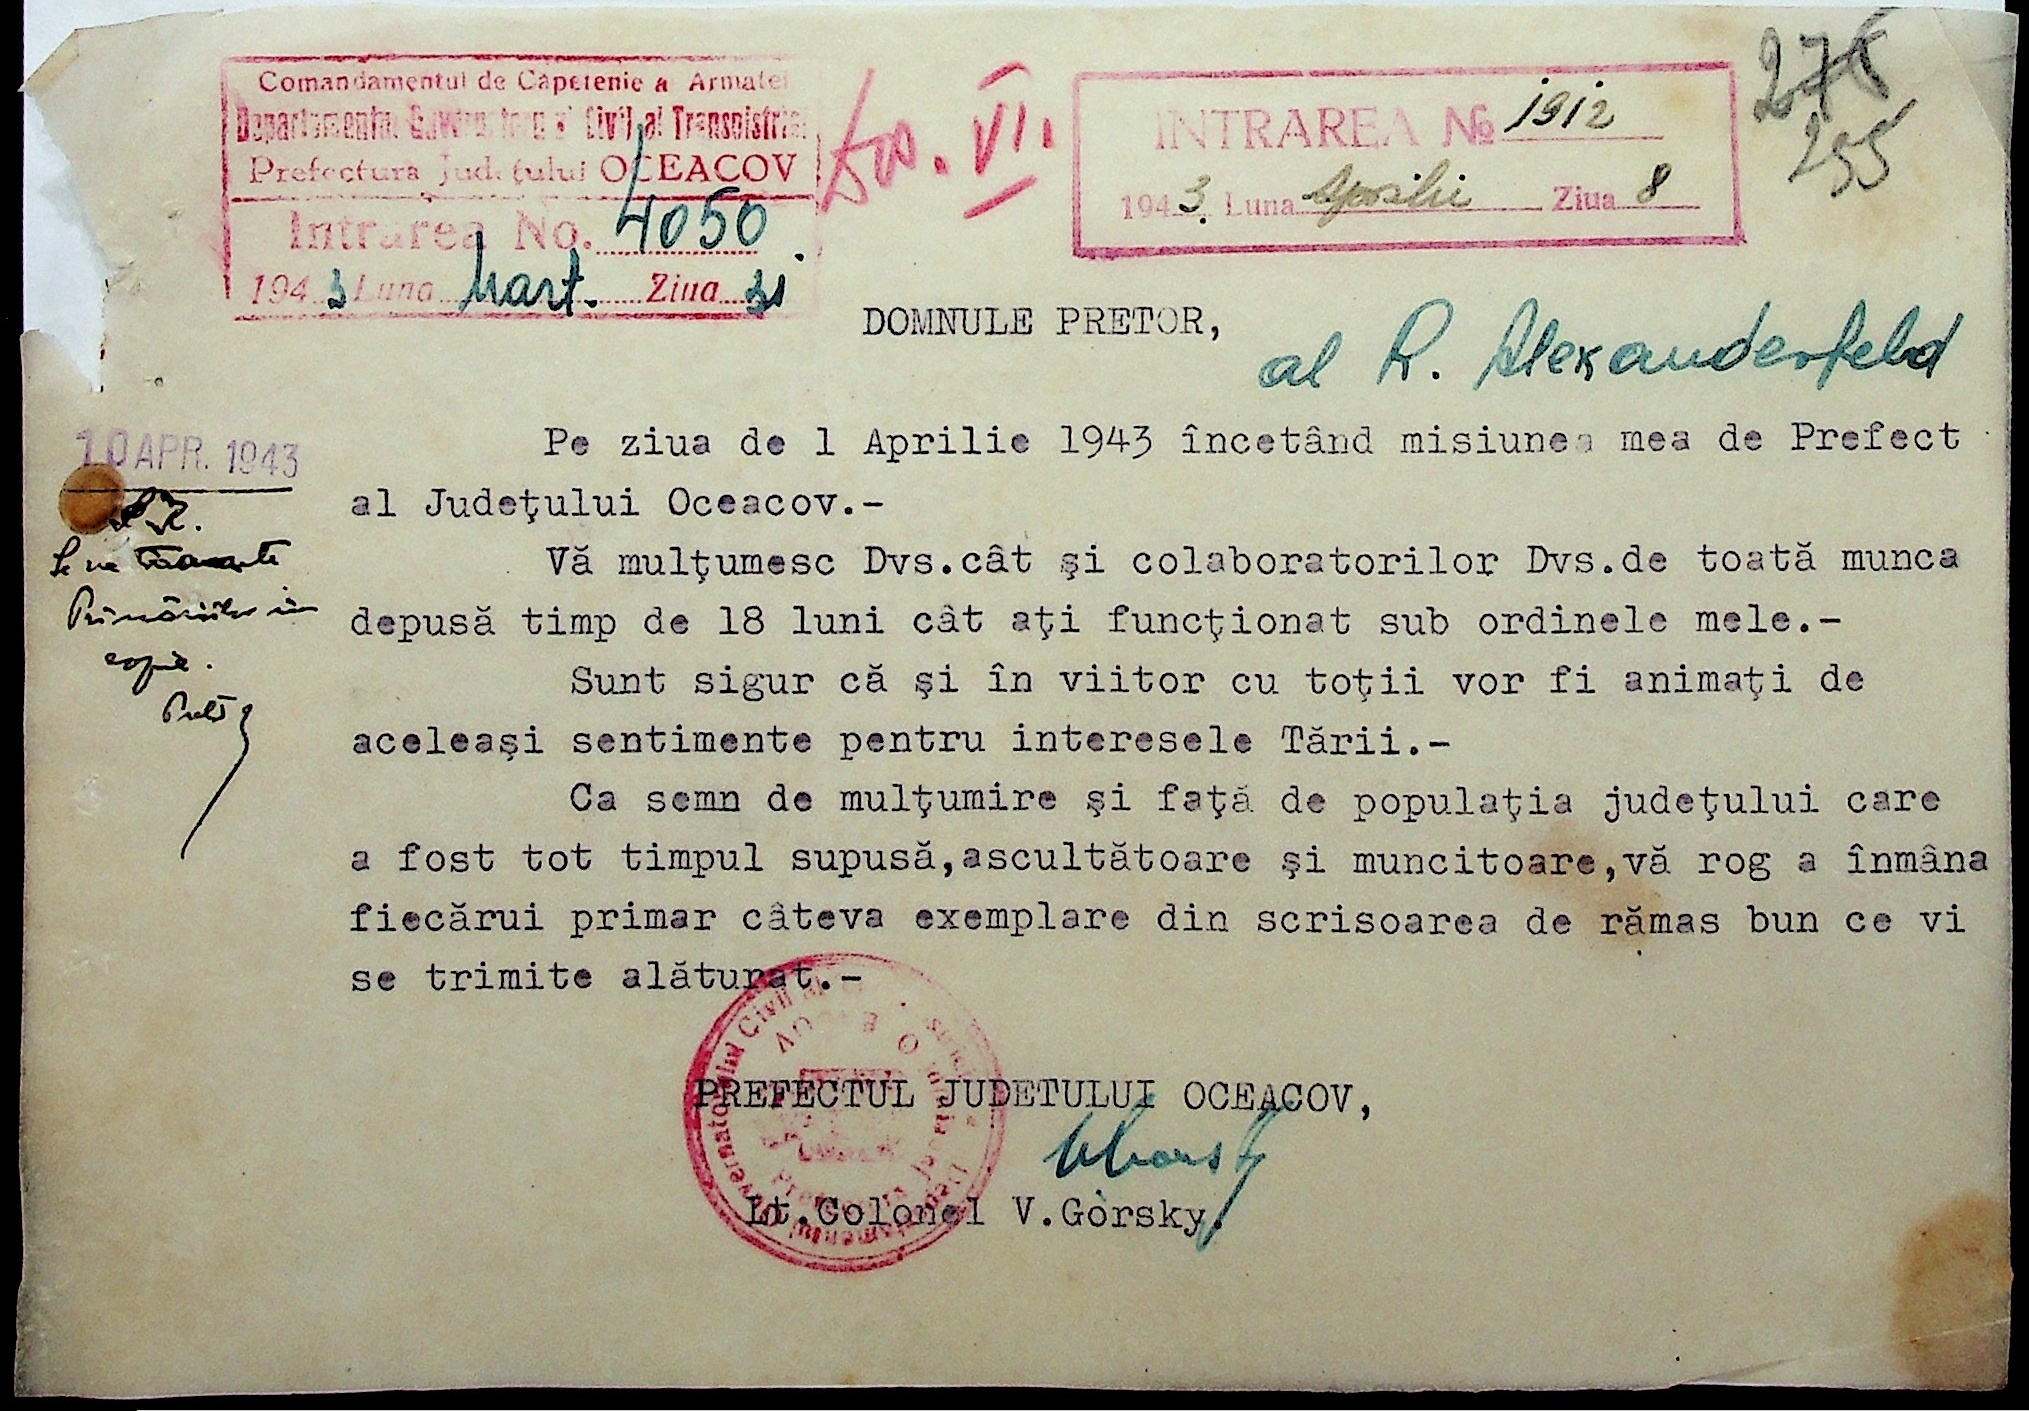 Comandamentul de Căpetenie a Armatei
Departamentul Guvernatorul Civil al Transnistriei
Prefectura Judeţului OCEACOV
Intrarea No. 4050
1943 Luna Mart. Ziua 31
VI.
INTRAREA № 1912
1943 Luna Aprilie Ziua 8
276
255
DOMNULE PRETOR,
al R. Alexanderfeld
10 APR. 1943
Se va
Primăriilor în
copie.
Pe ziua de 1 Aprilie 1943 încetând misiunea mea de Prefect
al Judeţului Oceacov.-
Vă mulţumesc Dvs.cât şi colaboratorilor Dvs.de toată munca
depusă timp de 18 luni cât aţi funcţionat sub ordinele mele.-
Sunt sigur că şi în viitor cu toţii vor fi animaţi de
aceleaşi sentimente pentru interesele Tării.-
Ca semn de mulţumire şi faţă de populaţia judeţului care
a fost tot timpul supusă,ascultătoare şi muncitoare,vă rog a înmâna
fiecărui primar câteva exemplare din scrisoarea de rămas bun ce vi
se trimite alăturat.-
PREFECTUL JUDETULUI OCEACOV,
Lt.Colonel V.Gorsky.